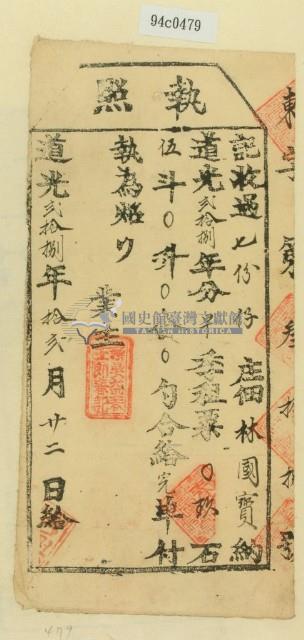 94c0479
執照
記收過七份仔庄佃林國寶納
道光貳拾捌年分季租粟〇玖石
伍斗〇升〇合〇勺合給完單付
執為炤
業主
道光貳拾捌年拾貳月廿二日給
東字第叁拾
國史館臺灣文獻館
TAIWAN HISTORICA
479